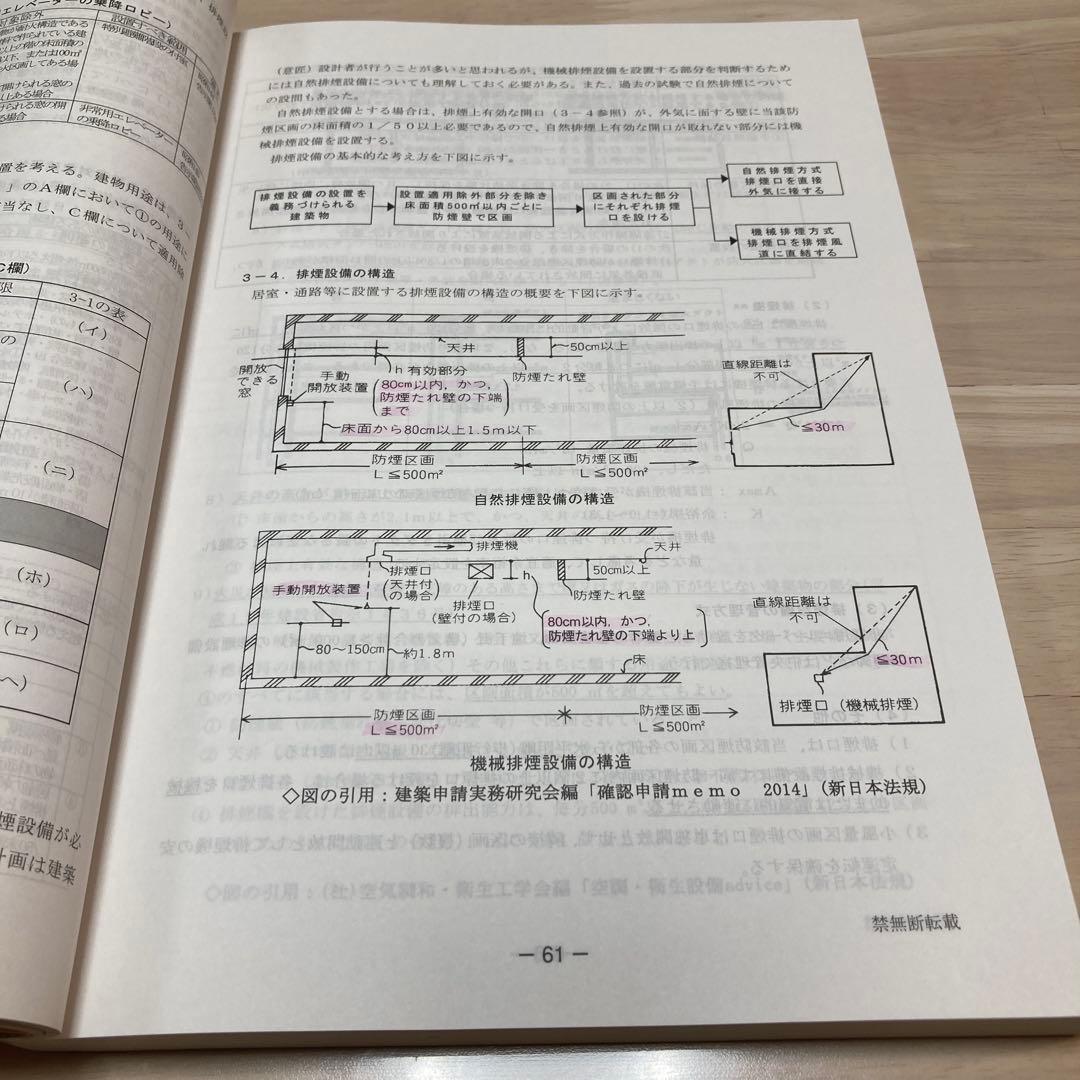 エレベーターの乗降ロビー)
対象除外
設置すべき範囲
非常用エレベーター
の乗降ロビー
置を考える。建物用途は、3－
」のA欄において①の用途に
当なし、C欄について適用除
C欄)
限
3-1の表
(イ)
の
(ハ)
(ニ)
(ホ)
(ロ)
煙設備が必
計画は建築
(意匠)設計者が行うことが多いと思われるが、機械排煙設備を設置する部分を判断するため
には自然排煙設備についても理解しておく必要がある。また、過去の試験で自然排煙について
の設問もあった。
自然排煙設備とする場合は、排煙上有効な開口(3－4参照)が、外気に面する壁に当該防
煙区画の床面積の1/50以上必要であるので、自然排煙上有効な開口が取れない部分には機
械排煙設備を設置する。
排煙設備の基本的な考え方を下図に示す。
排煙設備の設置を
義務づけられる
建築物
設置適用除外部分を除き
床面積500㎡以内ごとに
防煙壁で区画
区画された部分
にそれぞれ排煙
口を設ける
自然排煙方式
排煙口を直接
外気に接する
機械排煙方式
排煙口を排煙風
道に直結する
3－4．排煙設備の構造
居室・通路等に設置する排煙設備の構造の概要を下図に示す。
天井
50cm以上
開放
できる
窓
h 有効部分
防煙たれ壁
手動
開放装置
80cm以内，かつ，
防煙たれ壁の下端
まで
床面から80cm以上1.5m以下
防煙区画
L≦500㎡
防煙区画
L≦500㎡
直線距離は
不可
≦30m
自然排煙設備の構造
排煙機
天井
排煙口
(天井付
の場合)
h
50cm以上
手動開放装置
排煙口
(壁付の場合)
防煙たれ壁
80cm以内，かつ，
防煙たれ壁の下端より上
80～150cm
約1.8m
床
防煙区画
L≦500㎡
防煙区画
L≦500㎡
直線距離は
不可
≦30m
排煙口(機械排煙)
機械排煙設備の構造
◇図の引用：建築申請実務研究会編「確認申請memo 2014」(新日本法規)
禁無断転載
－61－